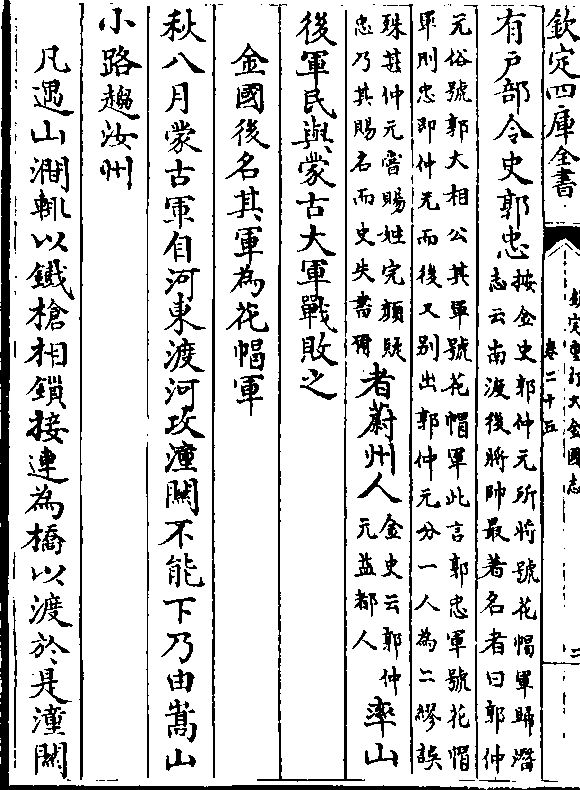 欽定四庫全書
欽定重訂大金國志
卷二十五
二
有戶部令史郭忠
按金史郭仲元所將號花帽軍歸潛
志云南渡後將帥最著名者曰郭仲
元俗號郭大相公其軍號花帽軍此言郭忠軍號花帽
軍則忠即仲元而後又别出郭仲元分一人為二繆誤
殊甚仲元嘗賜姓完顔疑
忠乃其賜名而史失書爾
者蔚州人
金史云郭仲
元益都人
率山
後軍民與蒙古大軍戰敗之
金國後名其軍為花帽軍
秋八月蒙古軍自河東渡河攻潼關不能下乃由嵩山
小路趨汝州
凡遇山澗輒以鐵槍相鎖接連為橋以渡於是潼關